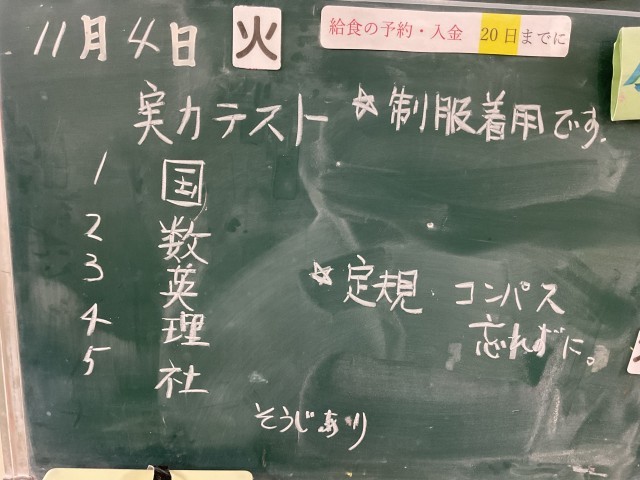 11月4日 火
給食の予約・入金 20日までに
実力テスト ☆制服着用です.
1 国
2 数
3 英
4 理
5 社
☆定規・コンパス
忘れずに。
そうじあり